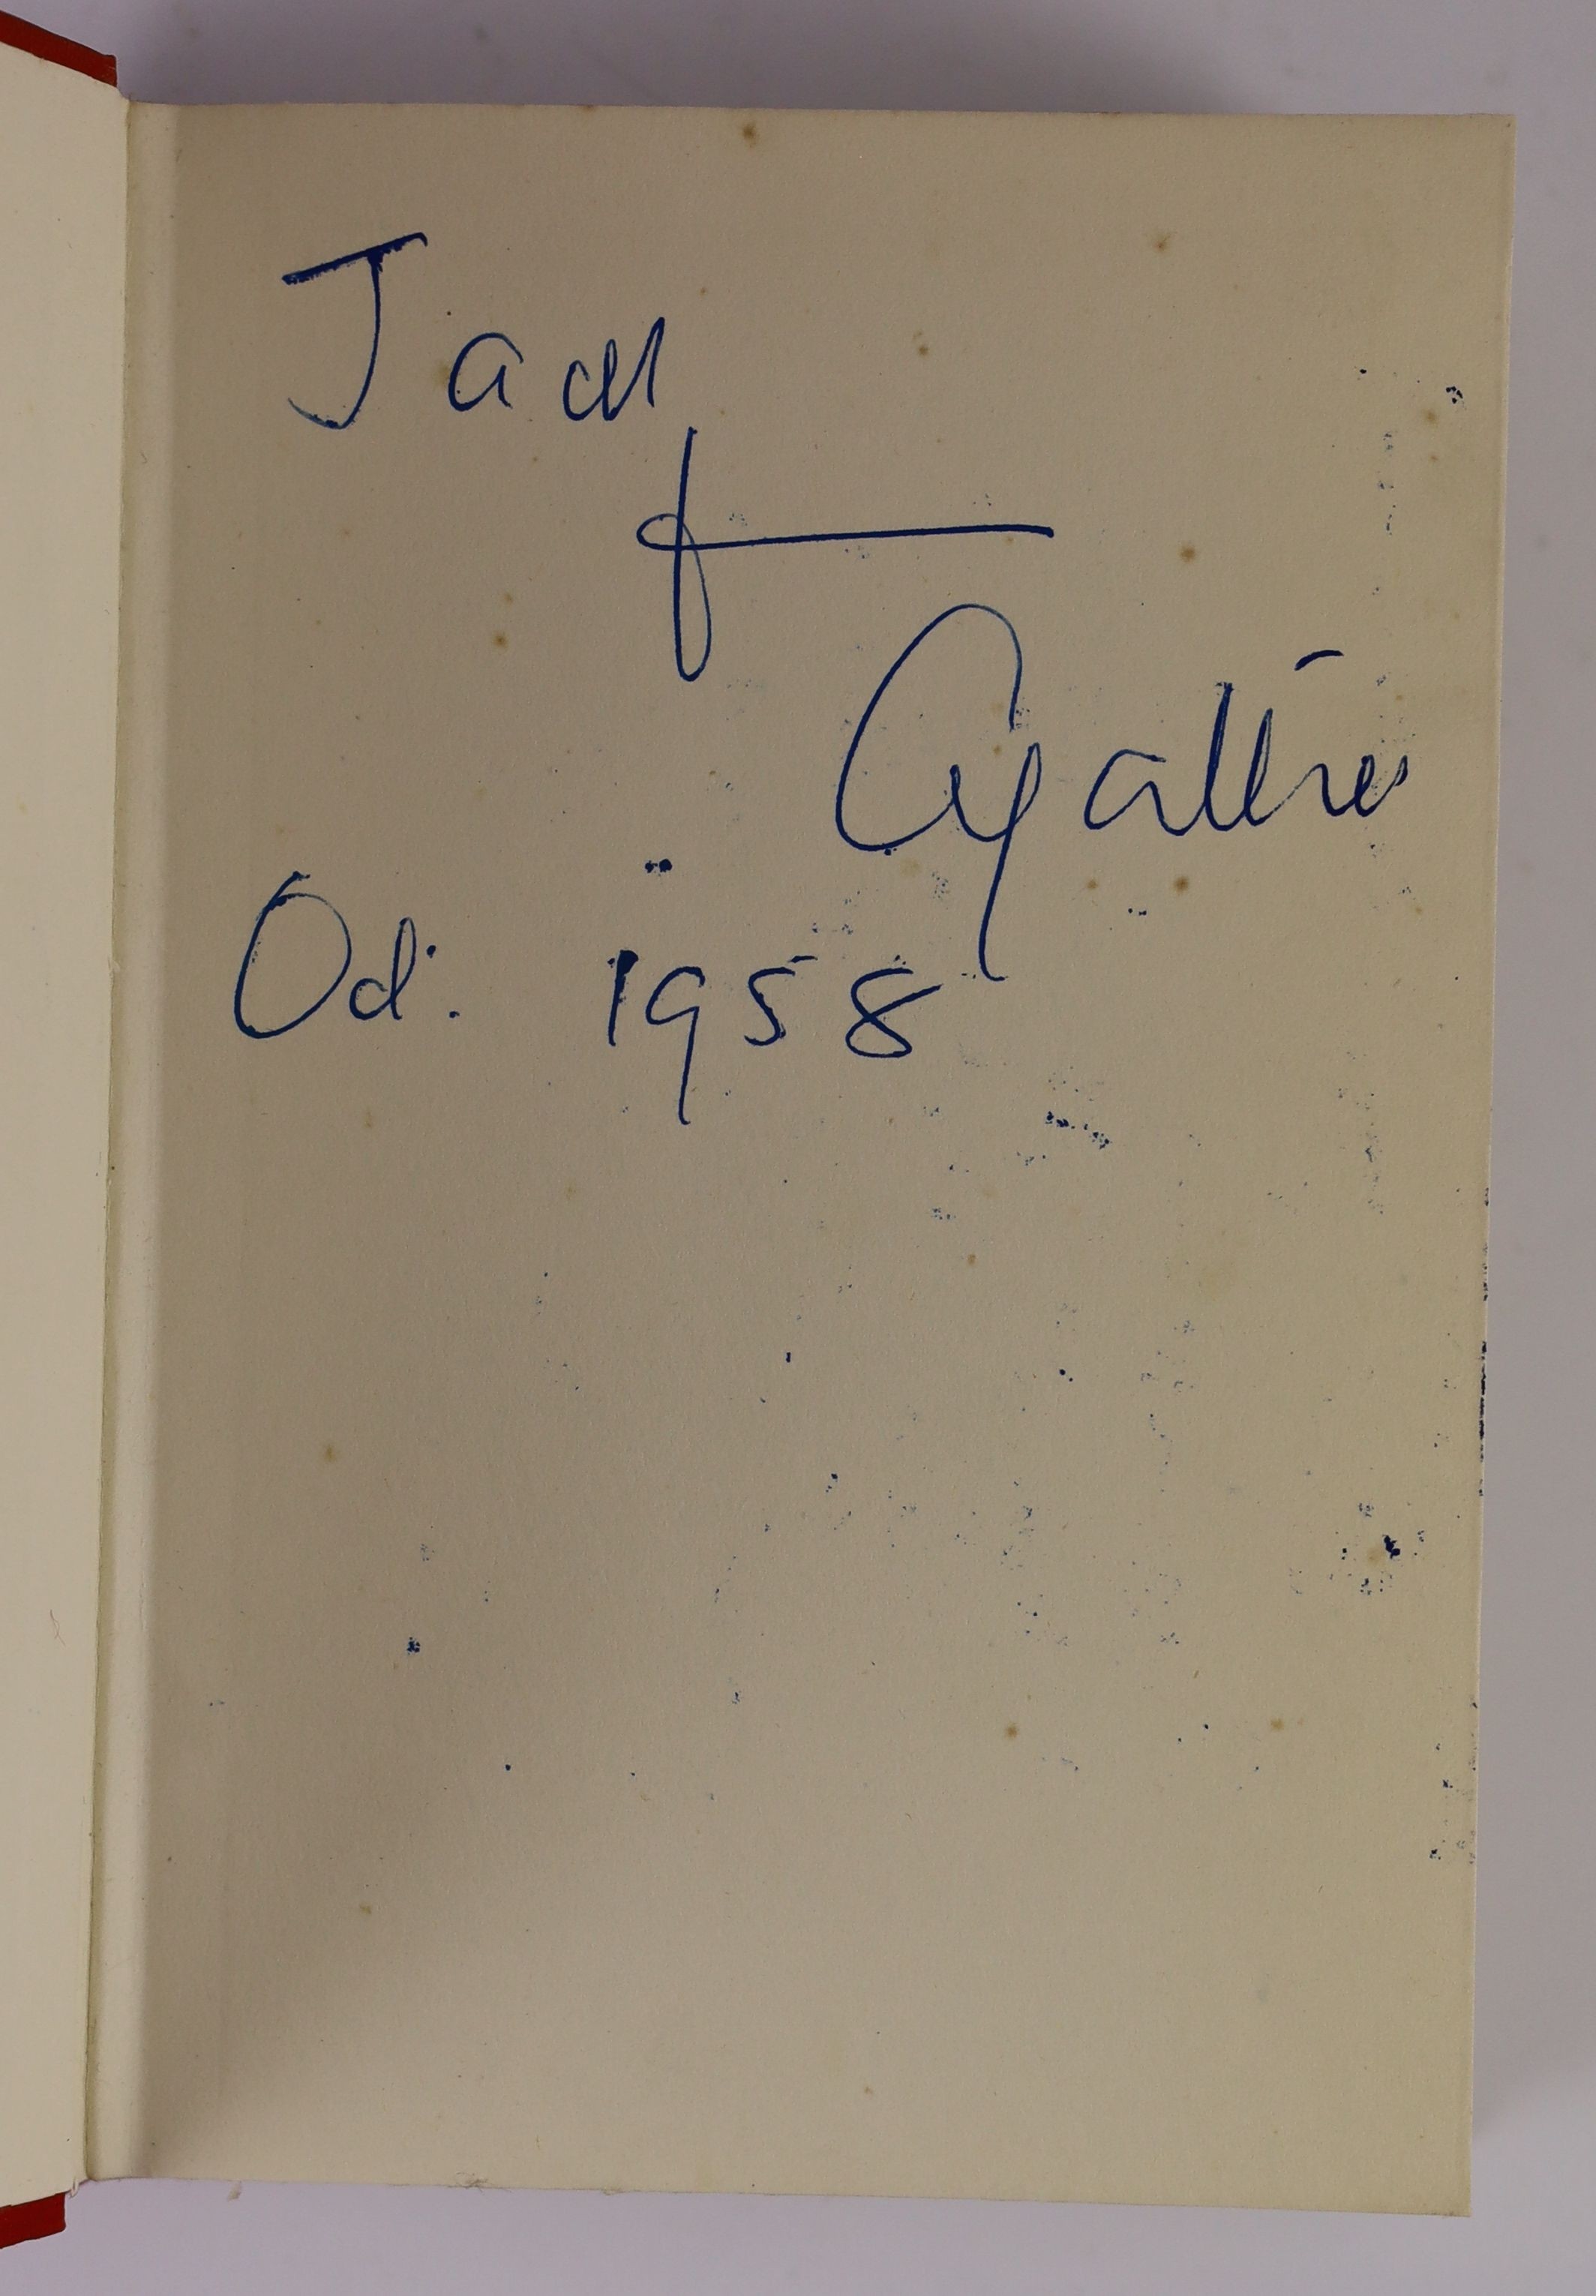 Jack
from
Agatha
Oct. 1958